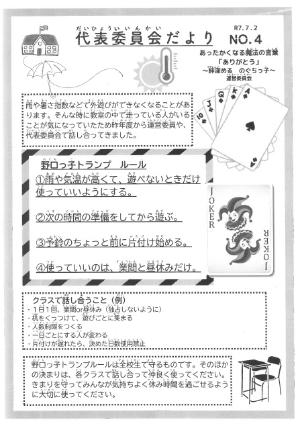 だいひょういいんかい
代表委員会だより
R7.7.2
NO.4
あったかくなる魔法の言葉
「ありがとう」
のぐちっ子
運営委員会
雨や暑さ指数などで外遊びができなくなることがあ
ります。そんな時に教室の中で走っている人がいるこ
とが気になっていたため昨年度から運営委員や、
代表委員会で話し合ってきました。
野口っ子トランプ ルール
①雨や気温が高くて、遊べないときだけ
使っていいようにする。
②次の時間の準備をしてから遊ぶ。
③予鈴のちょっと前に片付け始める。
④使っていいのは、業間と昼休みだけ。
JOKER
JOKER
クラスで話し合うこと（例）
・1日1回、業間or昼休み（独占しないように）
・机をくっつけて、遊びごとに集まる
・人数制限をつくる
・一日ごとにする人が変わる
・片付けが遅れたら、決めた日数使用禁止
野口っ子トランプルールは全校生で守るものです。そのほか
の決まりは、各クラスで話し合って仲良く使ってください。
きまりを守ってみんなが気持ちよく休み時間を過ごせるよう
に大切に使ってください。